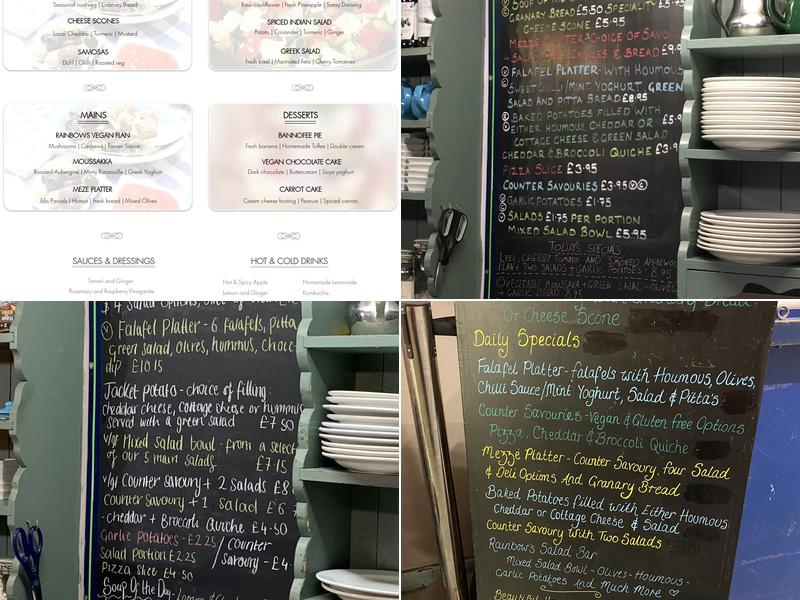 Seasonal rootveg | Granary Bread
CHEESE SCONES
Local Cheddar | Turmeric | Mustard
SAMOSAS
Dahl | Chilli | Roasted veg
Raw cauliflower | Fresh Pineapple | Satay Dressing
SPICED INDIAN SALAD
Potato | Coriander | Turmeric | Ginger
GREEK SALAD
Fresh basil | Marinated Feta | Cherry Tomatoes
MAINS
RAINBOWS VEGAN FLAN
Mushrooms | Cashews | Tamari Sauce
MOUSSAKKA
Roasted Aubergine | Minty Ratatouille | Greek Yoghurt
MEZE PLATTER
Filo Parcels | Humus | Fresh bread | Mixed Olives
DESSERTS
BANNOFEE PIE
Fresh banana | Homemade Toffee | Double cream
VEGAN CHOCOLATE CAKE
Dark chocolate | Buttercream | Soya yoghurt
CARROT CAKE
Cream cheese frosting | Peanuts | Spiced carrots
SAUCES & DRESSINGS
Tamari and Ginger
Rosemary and Raspberry Vinegarete
HOT & COLD DRINKS
Hot & Spicy Apple
Lemon and Ginger
Homemade Lemonade
Kombucha
SOUP OF THE
GRANARY BREAD £5.50 SPECIALITY £5.9
CHEESE SCONE £5.95
MEZZE PLATTER - CHOICE OF SAVO
SALAD, DELI CHOICES & BREAD £9.9
V FALAFEL PLATTER - WITH HOUMOUS
SWEET CHILLI / MINT YOGHURT, GREEN
SALAD AND PITTA BREAD £8.95
BAKED POTATOES FILLED WITH
EITHER HOUMOUS, CHEDDAR OR £5.9
COTTAGE CHEESE & GREEN SALAD
CHEDDAR & BROCCOLI QUICHE £3.9
PIZZA SLICE £3.95
COUNTER SAVOURIES £3.95 V G
GARLIC POTATOES £1.75
SALADS £1.75 PER PORTION
MIXED SALAD BOWL £5.95
TODAY'S SPECIALS
LEEK, CHERRY TOMATO AND SMOKED APPLEWOOD
FLAN + TWO SALADS + GARLIC POTATOES 8.95
VEGETABLE MOUSAKA + GREEN SALAD + OLIVES
+ GARLIC BREAD 8.95
V Falafel Platter - 6 falafels, pitta
green salad, olives, hummus, choic
dip £10.15
Jacket potato - choice of filling:
cheddar cheese, cottage cheese or hummus
served with a green salad £7.50
v/gf Mixed salad bowl - from a select
of our 5 main salads £7.15
v/gf Counter savoury + 2 salads £8
Counter savoury + 1 salad £6
- cheddar + Broccoli Quiche £4.50
Garlic Potatoes - £2.25 / counter
Salad portion £2.25 savoury - £4
Pizza slice £4.50
Soup Of the Day
Or Cheese Scone
Daily Specials
Falafel Platter - falafels with Houmous, Olives,
Chilli Sauce/Mint Yoghurt, Salad & Pitta's
Counter Savouries - Vegan & Gluten Free Options
Pizza, Cheddar & Broccoli Quiche
Mezze Platter - Counter Savoury, Four Salad
& Deli Options And Granary Bread
Baked Potatoes filled with Either Houmous
Cheddar or Cottage Cheese & Salad
Counter Savoury with Two Salads
Rainbows Salad Bar
Mixed Salad Bowl - Olives - Houmous -
Garlic Potatoes And Much More